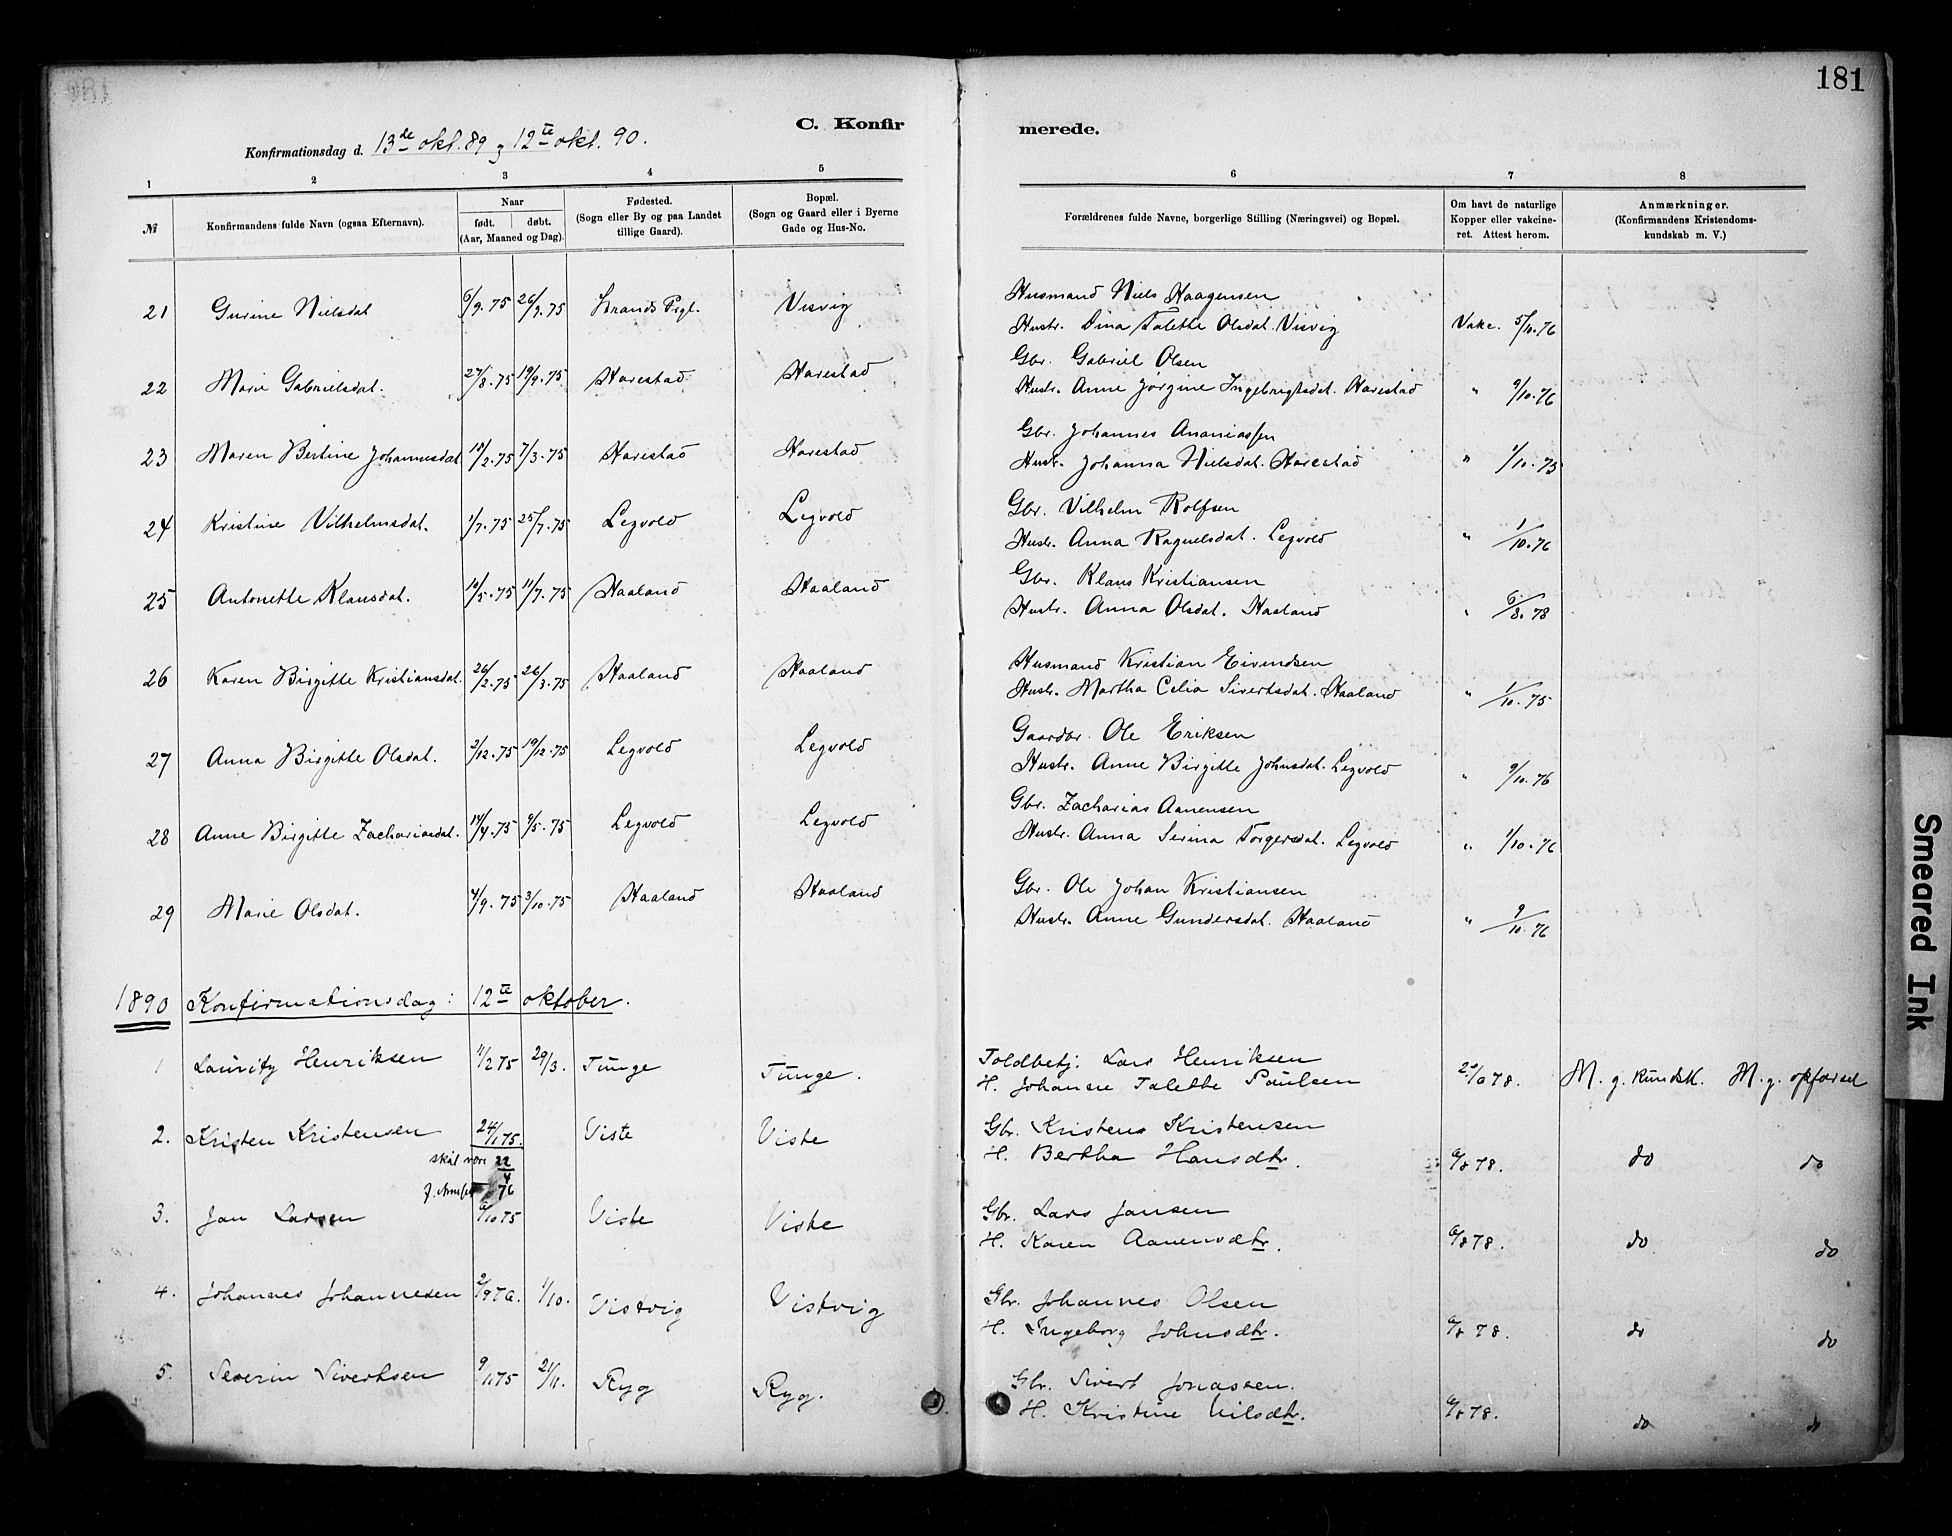 181
C. Konfirmerede.
Konfirmationsdag d. 13de okt. 89 og 12te okt. 90.
1 2 3 4 5 6 7 8
№ Konfirmandens fulde Navn (ogsaa Efternavn). Naar født. døbt. (Aar, Maaned og Dag). Fødested. (Sogn eller By og paa Landet tillige Gaard). Bopæl. (Sogn og Gaard eller i Byerne Gade og Hus-No. Forældrenes fulde Navne, borgerlige Stilling (Næringsvei) og Bopæl. Om havt de naturlige Kopper eller vakcineret. Attest herom. Anmærkninger. (Konfirmandens Kristendomskundskab m. V.)
21 Gurine Nielsdat 6/9.75 26/9.75 Strands Prgl. Visvig Husmand Niels Haagensen
Hustr. Dina Talette Olsdat. Visvig Vakc. 5/10.76
22 Marie Gabrielsdat. 27/8.75 19/9.75 Harestad Harestad Gbr. Gabriel Olsen
Hustr. Anne Jørgine Ingebrigtsdat. Harestad " 9/10.76
23 Maren Bertine Johannesdat 18/2.75 7/3.75 Harestad Harestad Gbr. Johannes Ananiassen
Hustr. Johanna Nielsdat. Harestad " 1/10.75
24 Kristine Vilhelmsdat. 1/7.75 25/7.75 Legvold Legvold Gbr. Vilhelm Rolfsen
Hustr. Anna Ragnelsdat. Legvold " 1/10.76
25 Antonette Klausdat. 10/5.75 11/7.75 Haaland Haaland Gbr. Klaus Kristiansen
Hustr. Anna Olsdat. Haaland " 6/8.78
26 Karen Birgitte Kristiansdat. 26/2.75 26/3.75 Haaland Haaland Husmand Kristian Eivindsen
Hustr. Martha Celia Sivertsdat. Haaland " 1/10.75
27 Anna Birgitte Olsdat. 2/12.75 19/12.75 Legvold Legvold Gaardbr. Ole Eriksen
Hustr. Anne Birgitte Johnsdat. Legvold " 9/10.76
28 Anne Birgitte Zachariasdat. 14/4.75 9/5.75 Legvold Legvold Gbr. Zacharias Aanensen
Hustr. Anna Serina Torgersdat. Legvold " 1/10.76
29 Marie Olsdat. 4/9.75 3/10.75 Haaland Haaland Gbr. Ole Johan Kristiansen
Hustr. Anne Gundersdat. Haaland " 9/10.76
1890 Konfirmationsdag: 12te oktober.
1 Lauritz Henriksen 11/2 75 29/3. Tunge Tunge. Toldbetj. Lars Henriksen
H. Johanne Talette Paulsen 78. M. g. kundsk. M. g. opførsel
2. Kristen Kristensen 24/1 75. Viste Viste Gbr. Kristen Kristensen
skal være 22/4 76 H. Bertha Hansdtr. 6/8 78. do do
3. Jan Larsen 6/10 75 Viste Viste Gbr. Lars Jansen
H. Karen Aanensdtr. 6/8 78. do do
4. Johannes Johannesen 1/10. Vistvig Vistvig Gbr. Johannes Olsen
H. Ingeborg Johnsdtr. 6/8 78. do do
5. Severin Sivertsen 9/11 75 21/11. Ryg Ryg. Gbr. Sivert Jonassen.
H. Kristine Nilsdtr. 6/8 78. do do
Smeared Ink